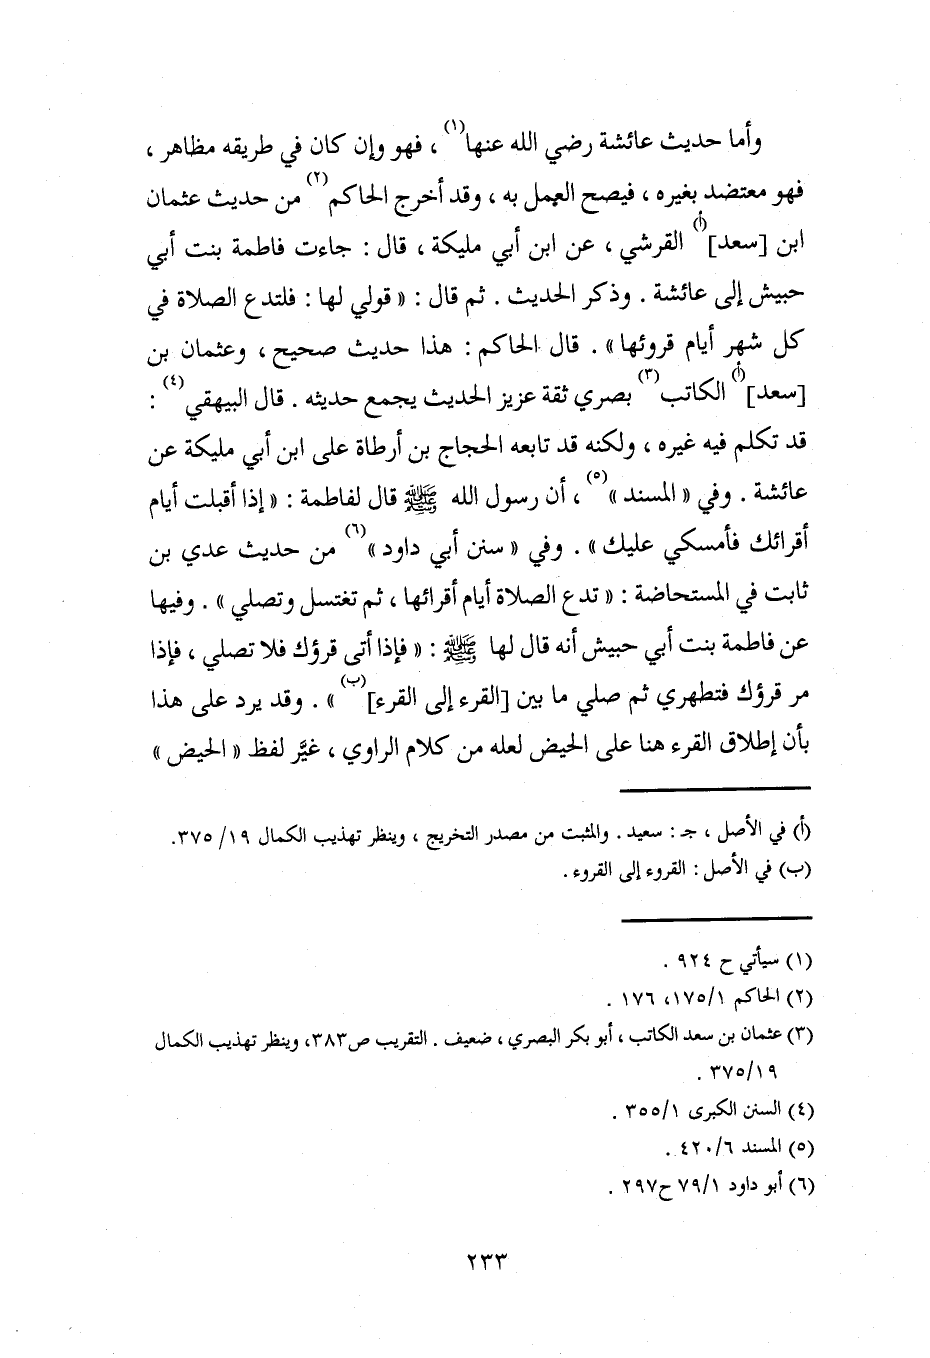 وأما حديث عائشة رضي الله عنها(١) ، فهو وإن كان في طريقه مظاهر ،
فهو معتضد بغيره ، فيصح العمل به ، وقد أخرج الحاكم(٢) من حديث عثمان
ابن [سعد](أ) القرشي ، عن ابن أبي مليكة ، قال : جاءت فاطمة بنت أبي
حبيش إلى عائشة . وذكر الحديث . ثم قال : « قولي لها : فلتدع الصلاة في
كل شهر أيام قروئها » . قال الحاكم : هذا حديث صحيح ، وعثمان بن
[سعد](أ) الكاتب(٣) بصري ثقة عزيز الحديث يجمع حديثه . قال البيهقي(٤) :
قد تكلم فيه غيره ، ولكنه قد تابعه الحجاج بن أرطاة على ابن أبي مليكة عن
عائشة . وفي « المسند »(٥) ، أن رسول الله ﷺ قال لفاطمة : « إذا أقبلت أيام
أقرائك فأمسكي عليك » . وفي « سنن أبي داود »(٦) من حديث عدي بن
ثابت في المستحاضة : « تدع الصلاة أيام أقرائها ، ثم تغتسل وتصلي » . وفيها
عن فاطمة بنت أبي حبيش أنه قال لها ﷺ : « فإذا أتى قرؤك فلا تصلي ، فإذا
مر قرؤك فتطهري ثم صلي ما بين [القرء إلى القرء](ب) » . وقد يرد على هذا
بأن إطلاق القرء هنا على الحيض لعله من كلام الراوي ، غيَّر لفظ « الحيض »
(أ) في الأصل ، جـ : سعيد . والمثبت من مصدر التخريج ، وينظر تهذيب الكمال ١٩/ ٣٧٥.
(ب) في الأصل : القروء إلى القروء .
(١) سيأتي ح ٩٢٤ .
(٢) الحاكم ١/ ١٧٥، ١٧٦ .
(٣) عثمان بن سعد الكاتب ، أبو بكر البصري ، ضعيف . التقريب ص٣٨٣، وينظر تهذيب الكمال
١٩/ ٣٧٥ .
(٤) السنن الكبرى ١/ ٣٥٥ .
(٥) المسند ٦/ ٤٢٠ .
(٦) أبو داود ١/ ٧٩ ح٢٩٧ .
٢٣٣